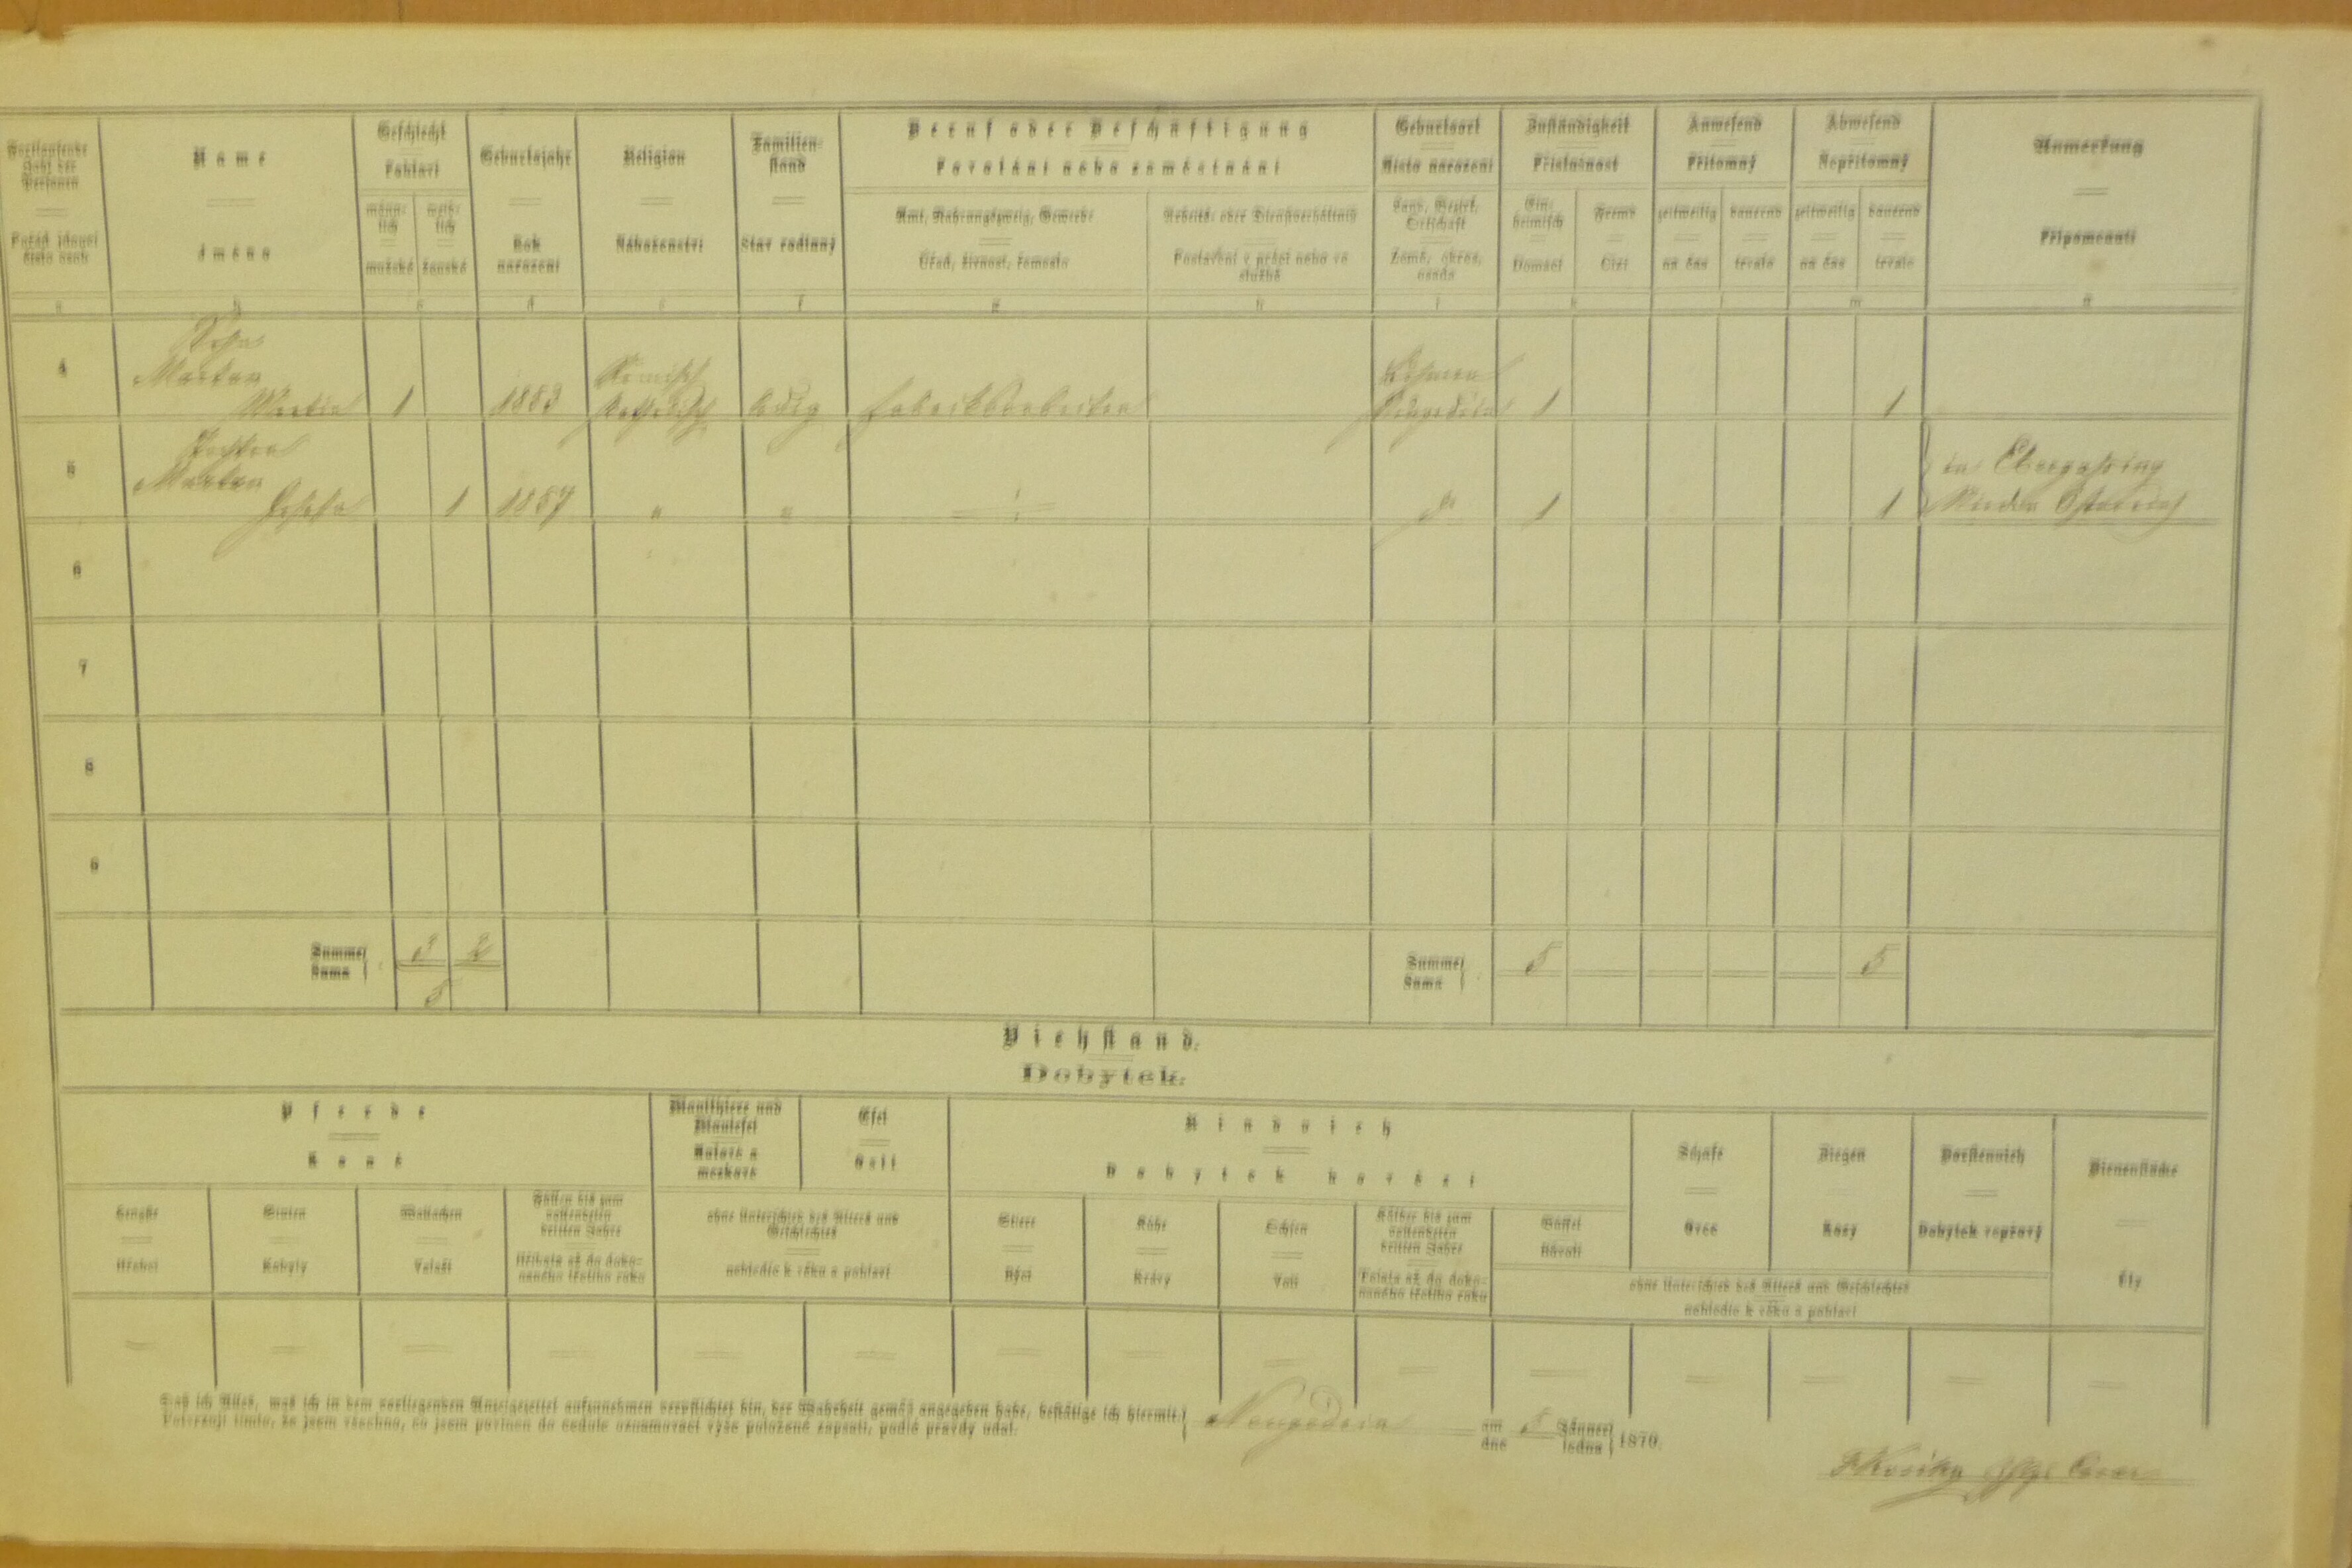 Fortlaufende Zahl der Personen
Pořád jdoucí číslo osob
Name
Jméno
Geschlecht
Pohlaví
männlich
mužské
weiblich
ženské
Geburtsjahr
Rok narození
Religion
Náboženství
Familienstand
Stav rodinný
Beruf oder Beschäftigung
Povolání nebo zaměstnání
Amt, Nahrungszweig, Gewerbe
Úřad, živnost, řemeslo
Arbeits- oder Dienstverhältniß
Postavení v práci nebo ve službě
Geburtsort
Místo narození
Land, Bezirk, Ortschaft
Země, okres, osada
Zuständigkeit
Příslušnost
Einheimisch
Domácí
Fremd
Cizí
Anwesend
Přítomný
zeitweilig
na čas
dauernd
trvale
Abwesend
Nepřítomný
zeitweilig
na čas
dauernd
trvale
Anmerkung
Připomenutí
a b c d e f g h i k l m n
4
Sohn
Martan
Martin 1 1853 Römisch Katholisch ledig Fabriksarbeiter Böhmen Neugedein 1 1
5
Tochter
Martan
Josefa 1 1857 " " =!= dº 1 1
in Ebergassing
Nieder Österreich
6
7
8
9
Summe
Suma
3 2
5
Summe
Suma
5 5
Viehstand.
Dobytek.
Pferde
Koně
Hengste
Hřebci
Stuten
Kobyly
Wallachen
Valaši
Füllen bis zum vollendeten dritten Jahre
Hříbata až do dokonaného třetího roku
Maulthiere und Maulesel
Mulové a mezkové
Esel
Osli
ohne Unterschied des Alters und Geschlechtes
nehledíc k věku a pohlaví
Rindvieh
Dobytek hovězí
Stiere
Býci
Kühe
Krávy
Ochsen
Voli
Kälber bis zum vollendeten dritten Jahre
Telata až do dokonaného třetího roku
Büffel
Bůvoli
Schafe
Ovce
Ziegen
Kozy
Borstenvieh
Dobytek vepřový
ohne Unterschied des Alters und Geschlechtes
nehledíc k věku a pohlaví
Bienenstöcke
Úly
Daß ich Alles, was ich in dem vorliegenden Anzeigezettel aufzunehmen verpflichtet bin, der Wahrheit gemäß angegeben habe, bestätige ich hiermit.
Potvrzuji tímto, že jsem všechno, co jsem povinen do cedule oznamovací výše položené zapsati, podlé pravdy udal.
Neugedein am 5 Jänner 1870.
dne ledna